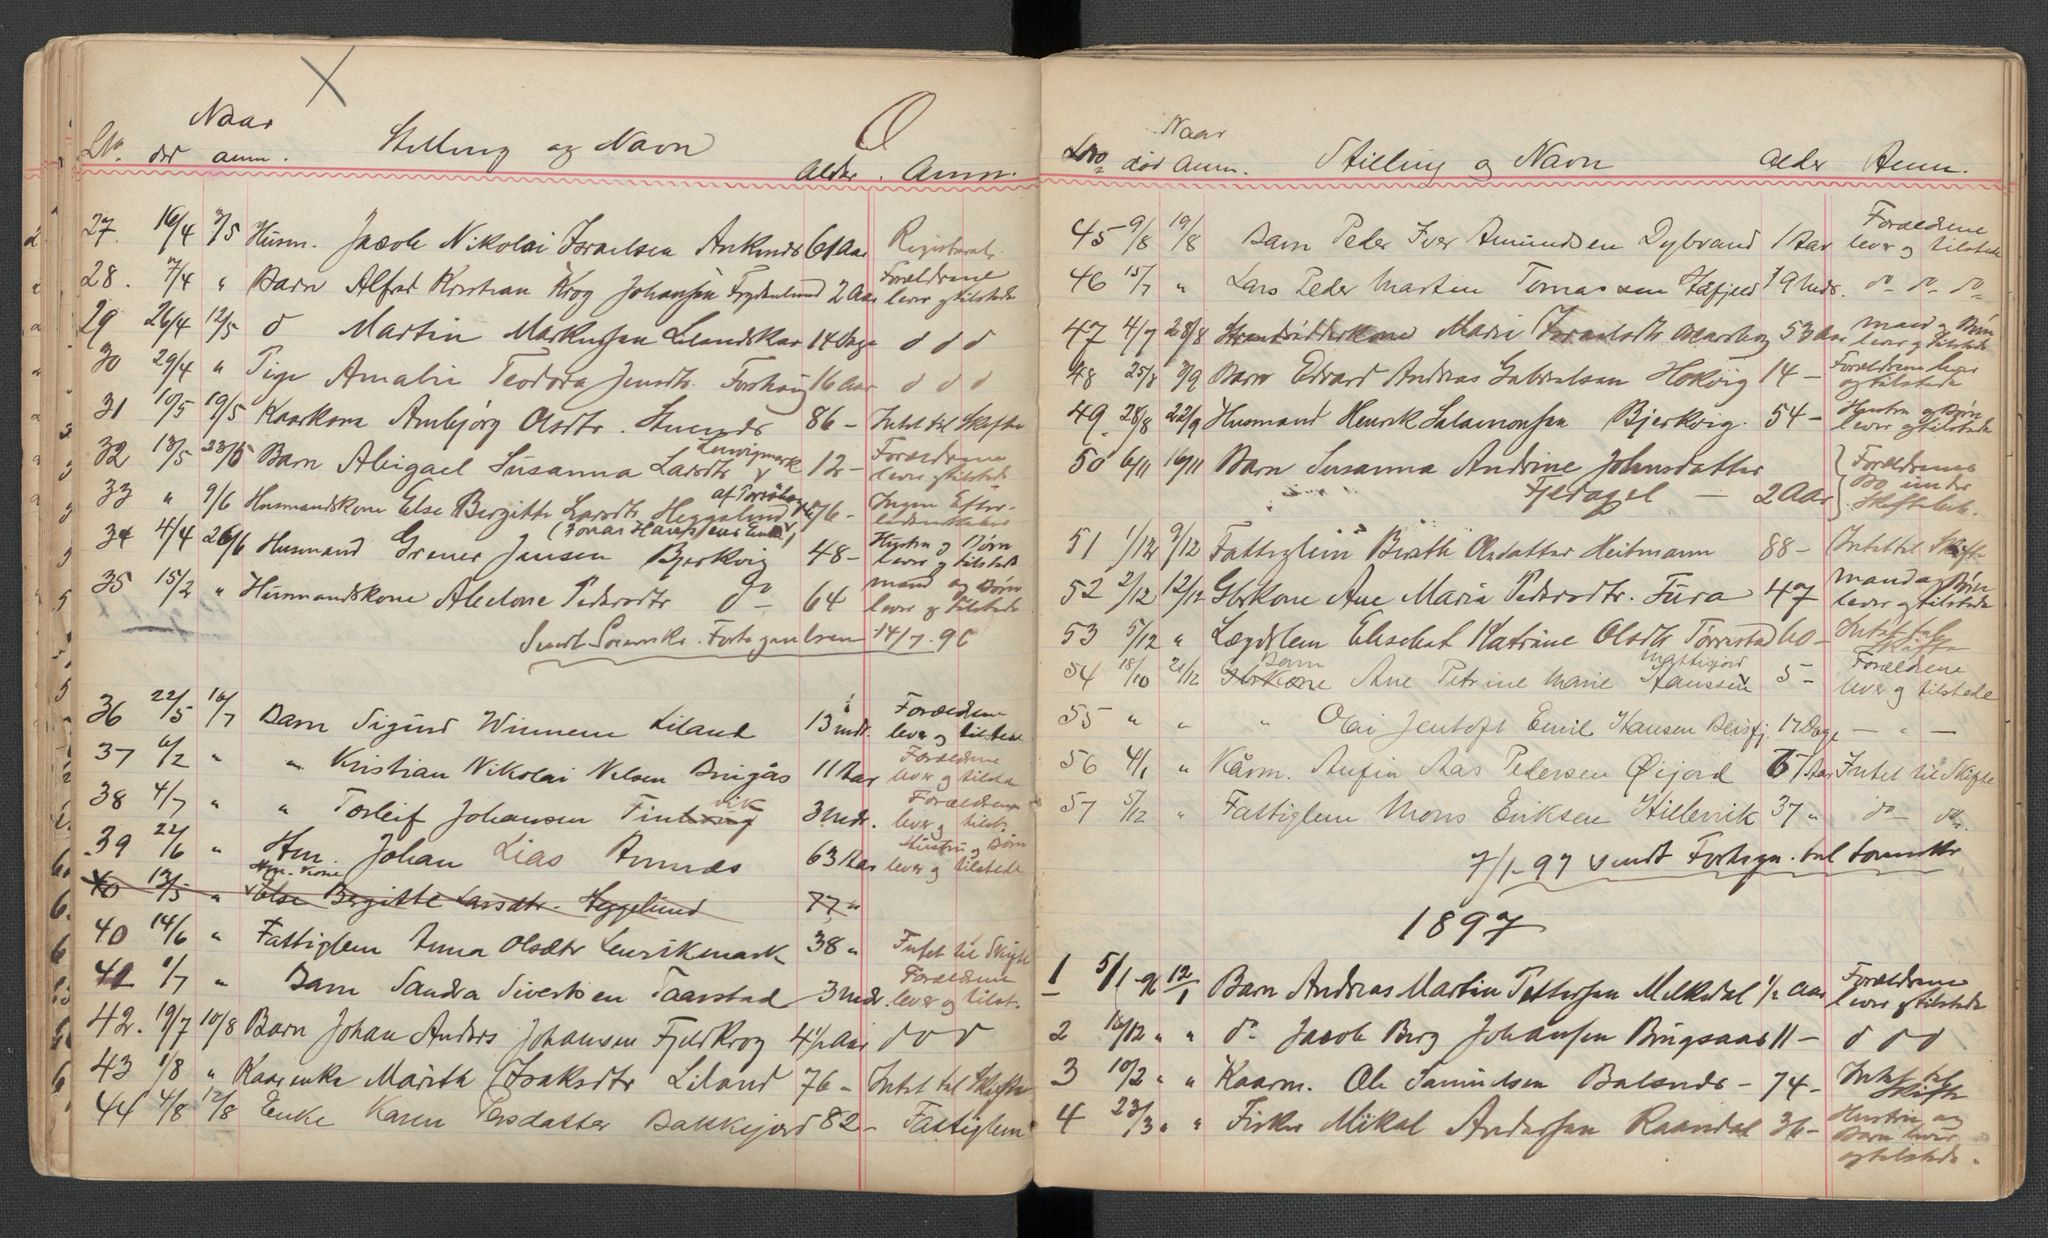 Naar
No. død anm. Stilling og Navn Alder. Anm.
27. 16/4 7/5 Husm. Jacob Nikolai Israelsen Ankenes 61 Aar Registreret.
28. 7/4 " Barn Alfred Kristian Krog Johansen Frydenlund 2 Aar Forældrene
lever og tilstede
29 26/4 12/5 d Martin Markussen Lilandskar 14 Dage d d d
30 29/4 " Pige Amalie Teodora Jensdtr. Forshaug 16 Aar d d d
31 10/5 19/5 Kaarkone Anbjørg Olsdtr. 86 – Intet til Skifte
32 13/5 23/5 Barn Abigael Susanna Larsdtr Lenvigmark 12 – Forældrene
lever og tilstede
33 " 9/6 Husmandskone Else Birgitte Larsdtr. Heggelund 76 – Ingen Efter-
(Jonas Hanssens Enke)
34 4/4 26/6 Husmand Grener Jansen Bjerkvig 48 – Hustru og Børn
lever og tilstede
35 15/2 " Husmandskone Abelone Pedersdtr do 64 mand og Børn
lever og tilstede
Sendt Sorenskr. Fortegnelsen 14/7. 96
36 22/5 16/7 Barn Sigurd Winnem Liland 13 mdr. Forældrene
lever og tilstede
37 6/2 " " Kristian Nikolai Nilsen Brigås 11 Aar Forældrene
lever og tilstede
38 4/7 " " Torleif Johansen Finvik 3 mdr. Forældrene
lever og tilst.
39 22/6 " Hm. Johan Lias Annæs 63 Aar Hustru og Børn
lever og tilstede
Hm. Kone
40 13/5 " Else Birgitte Larsdtr. Heggelund 77 "
40 14/6 " Fattiglem Anna Olsdtr Lenvikmark 38 " Intet til Skifte
41 1/7 " Barn Sandra Sivertsen Taarstad 3 mdr Forældrene
lever og tilst.
42. 19/7 10/8 Barn Johan Anders Johansen Fjeldkrog 4 1/2 Aar d d d
43 1/8 " Kaarenke Marith Isaksdtr Liland 76 – Intet til Skifte
44 4/8 12/8 Enke Karen Persdatter Bakkejord 82 – Fattiglem
Naar
No død Anm. Stilling og Navn Alder Anm.
45 9/8 19/8 Barn Peder Iver Amundsen Dybvand 1 Aar Forældrene
lever og tilstede
46 15/7 " Lars Peder Martin Tomassen Hafjeld 19 mdr. do do do
47 4/7 28/8 Maria Israelsdtr 53 Aar mand og Børn
lever og tilstede
48 25/8 7/9 Barn Edvard Andreas Gabrielsen Hokvig 14 – Forældrene lever
og tilstede
49. 28/8 22/9 Husmand Henrik Salamonsen Bjerkvig. 54 – Hustru og Børn
lever og tilstede
50 6/11 16/11 Barn Susanna Andrine Johnsdatter Forældrenes
Fjeldgel – 2 Aar Bo under
Skiftebeh.
51 1/12 9/12 Fattiglem Berith Olsdatter Heitmann 88 – Intet til Skifte
52 2/12 12/12 Gbrkone Ane Maria Pedersdtr. Fura 47 mand og Børn
lever og tilstede
53 5/12 " Lægdslem Elisebet Katrine Olsdtr Torrestad 60 – Intet til
Skifte
54 18/10 21/12 Gbrkone Barn Ane Petrine Marie Hanssen 5 – Forældrene
lever og tilstede
55 " " " Jentoft Emil Hansen Beisfj. 17 Dage – " –
56 4/1 " Kårm. Anfin Aas Pedersen Øijord 67 Aar Intet til Skifte
57 5/12 " Fattiglem Mons Eriksen Hillevik 37 " do do
7/1-97 sendt Fortegn. til
1897
1 5/1-96 12/1 Barn Andreas Martin Pettersen Melkedal 1/2 Aar Forældrene
lever og tilstede
2 18/12 " " do Jacob Berg Johansen Brugsaas 11 – d d d
3 10/2 " " Kaarm. Ole Samuelsen Balsnes – 74 – Intet til
Skifte
4 23/3 " " Fisker Mikal Andersen Raandal 36 – Hustru og
Barn lever
og tilstede.